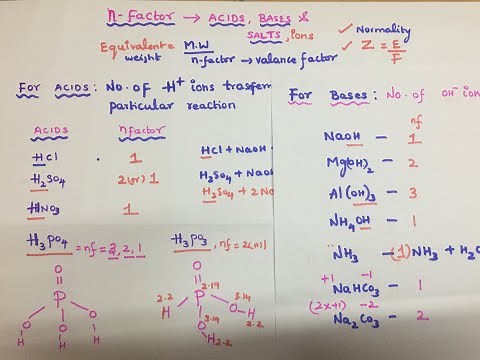 n-Factor → ACIDS, BASES &
SALTS, ions
Equivalent weight = M.W / n-factor → valance factor
✓ Normality
✓ Z = E/F
For ACIDS: No. of H+ ions trasfern
particular reaction
ACIDS nfactor
HCl · 1 HCl + NaOH
H2SO4 2(or) 1 H2SO4 + NaO
H2SO4 + 2Na
HNO3 1
H3PO4 = nf = 3, 2, 1
O
P
O O O
H H H
H3PO3, nf = 2(or)1
O
2.2 2.19 3.14
H P O H
2.2
3.14 O
H 2.2
For Bases: No. of OH- ion
nf
NaOH — 1
Mg(OH)2 — 2
Al(OH)3 — 3
NH4OH — 1
NH3 — (1) NH3 + H2O
+1 -1
NaHCO3 — 1
(2x+1) -2
Na2CO3 — 2